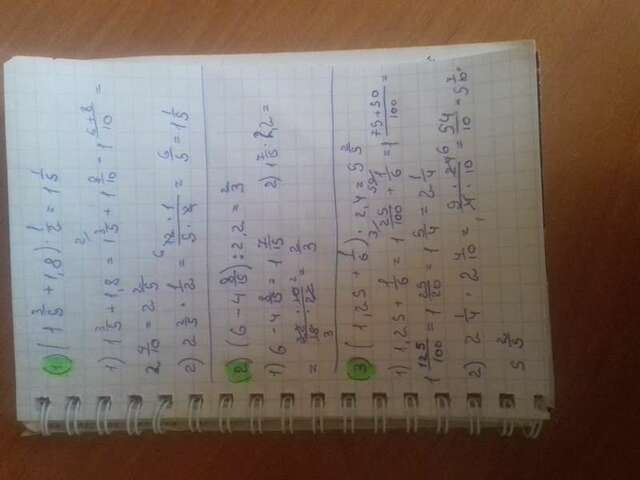 1) (1 3/5 + 1,8) · 1/2 = 1 1/5
1) 1 3/5 + 1,8 = 1 3/5 + 1 8/10 = 1 6+8/10 =
2 4/10 = 2 2/5
2) 2 2/5 · 1/2 = 12 · 1/5 · 2 = 6/5 = 1 1/5
2) (6 - 4 8/15) : 2,2 = 2/3
1) 6 - 4 8/15 = 1 7/15 2) 1 7/15 : 2,2 =
= 22 · 10/15 · 22 = 2/3
3) (1,25 + 1/6) · 2,4 = 5 2/5
1) 1,25 + 1/6 = 1 25/100 + 1/6 = 1 75+50/100 =
1 125/100 = 1 25/20 = 1 5/4 = 2 1/4
2) 2 1/4 · 2 4/10 = 9 · 24/4 · 10 = 54/10 = 5 4/10 =
5 2/5